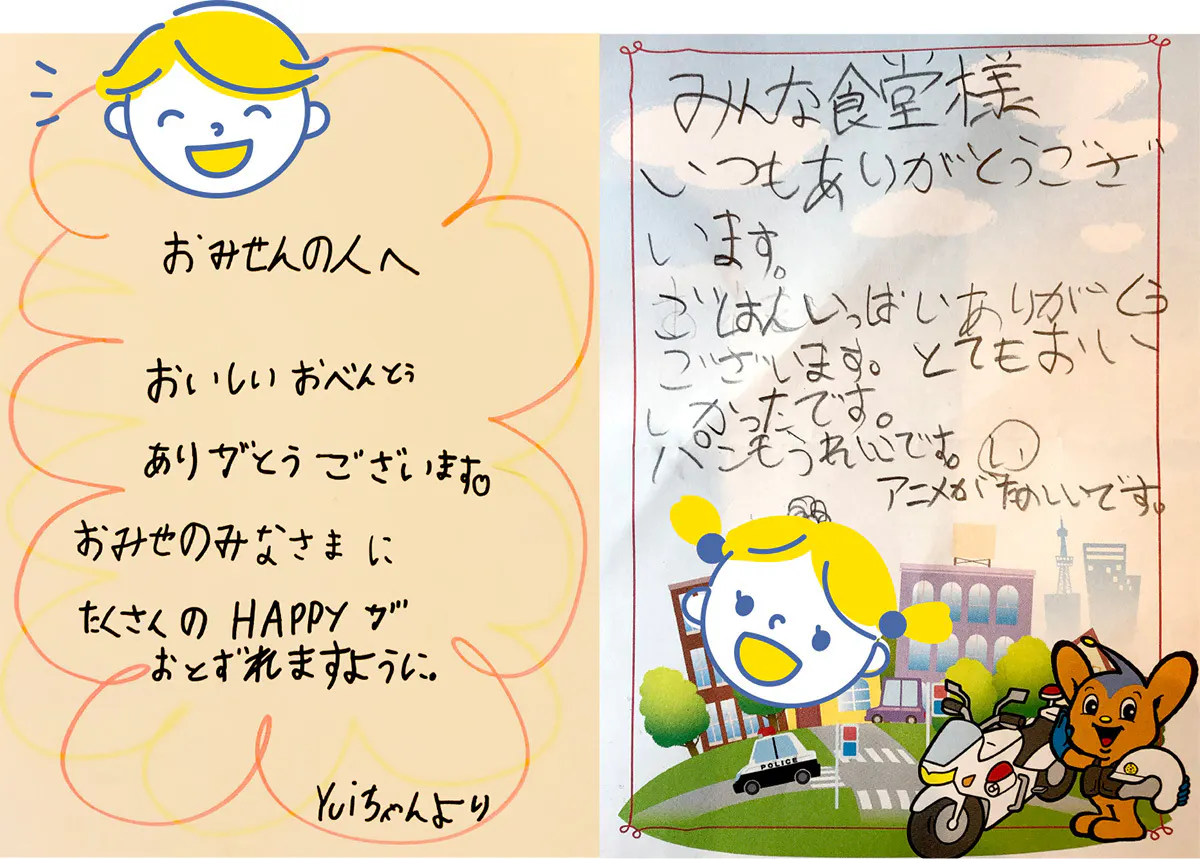 おみせんの人へ
おいしいおべんとう
ありがとうございます。
おみせのみなさまに
たくさんの HAPPY が
おとずれますように。
Yuiちゃんより
みんな食堂様
いつもありがとうござ
います。
ごはんいっぱいありがとう
ございます。とてもおい
しかったです。
パンもうれしいです。 い
アニメがたのしいです。
POLICE